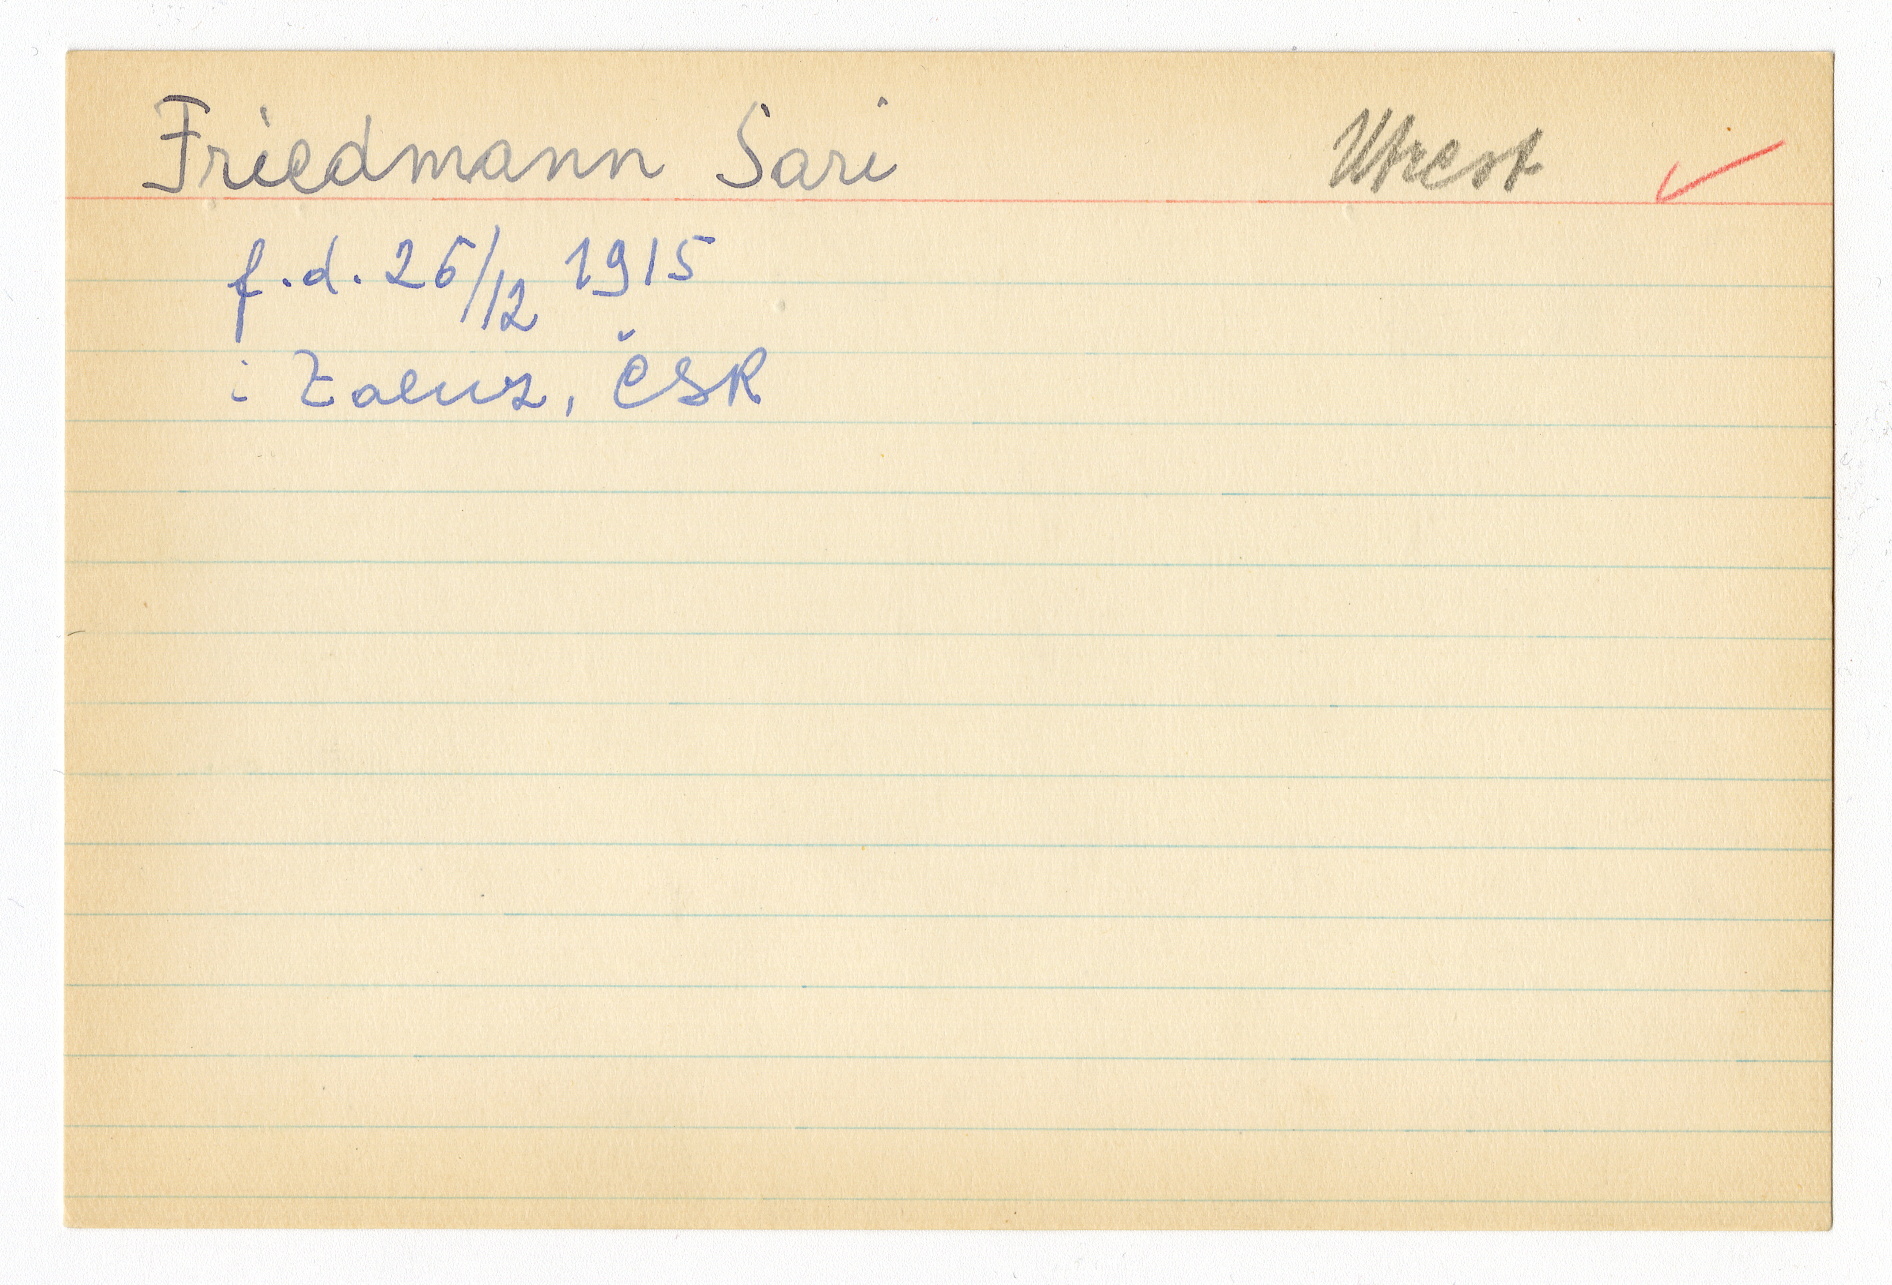 Friedmann Sari Utrest ✓
f.d. 26/12 1915
i Zaluz, ČSR